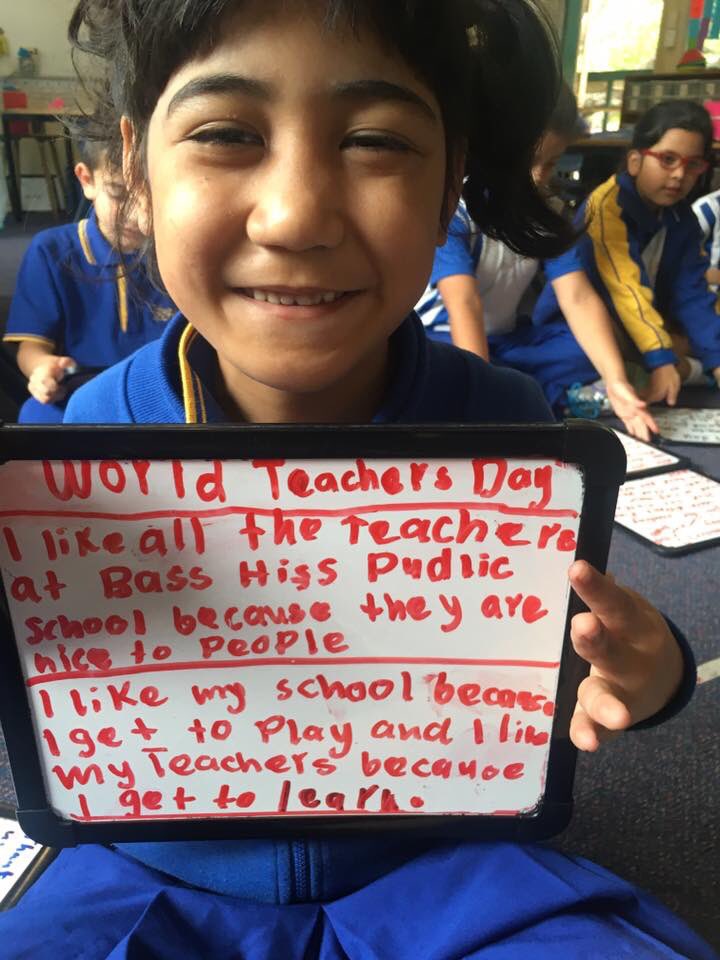 World Teachers Day
I like all the Teachers
at Bass Hiss Pudlic
school because they are
nice to People
I like my school because
I get to Play and I like
my Teachers because
I get to learn.